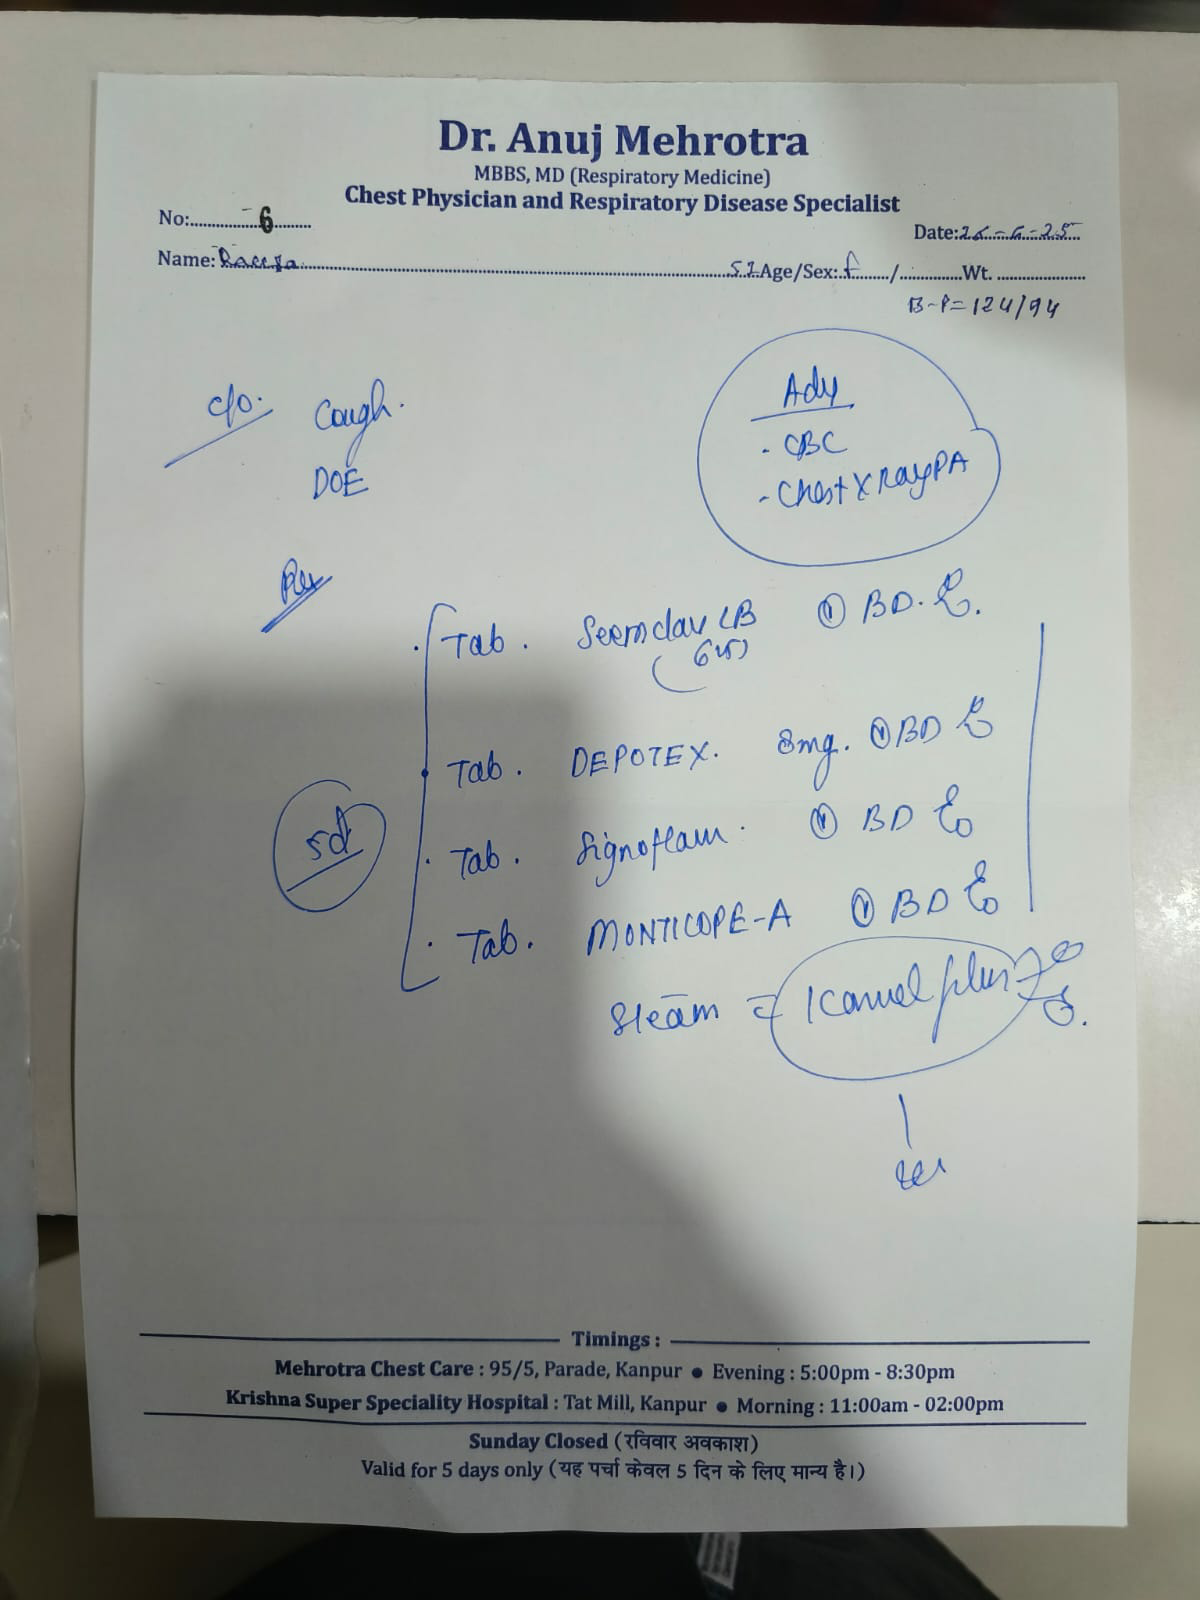 Dr. Anuj Mehrotra
MBBS, MD (Respiratory Medicine)
Chest Physician and Respiratory Disease Specialist
No:..................6..........
Date:..-25
Name:..........51 Age/Sex: f ......./..............Wt. ....................
B-P= 124/94
c/o. Cough.
DOE
Adv
- CBC
- Chest X Ray PA
Rx
Tab. LB ① BD.
(625)
Tab. DEPOTEX. 8mg. ① BD
5d
Tab. Signoflam. ① BD
Tab. MONTICOPE-A ① BD
Steam plus
Timings :
Mehrotra Chest Care : 95/5, Parade, Kanpur ● Evening : 5:00pm - 8:30pm
Krishna Super Speciality Hospital : Tat Mill, Kanpur ● Morning : 11:00am - 02:00pm
Sunday Closed (रविवार अवकाश)
Valid for 5 days only (यह पर्चा केवल 5 दिन के लिए मान्य है।)